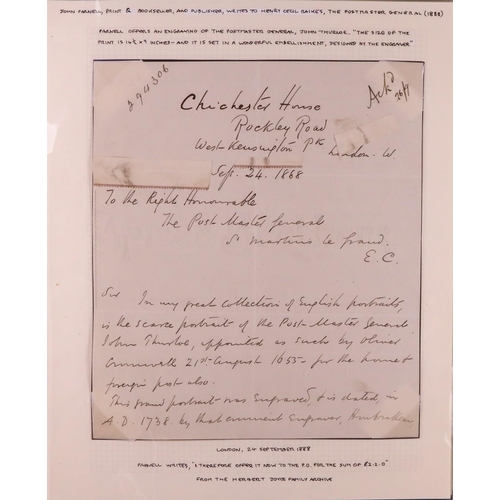 JOHN FARNELL, PRINT & BOOKSELLER, AND PUBLISHER, WRITES TO HENRY CECIL RAIKES, THE POSTMASTER GENERAL (1888)
FARNELL OFFERS AN ENGRAVING OF THE POSTMASTER GENERAL, JOHN THURLOE. "THE SIZE OF THE
PRINT IS 14½ x 9 INCHES - AND IT IS SET IN A WONDERFUL EMBELLISHMENT, DESIGNED BY THE ENGRAVER"
294306
Ackd
26/9
Chichester House
Rockley Road
West Kensington Pk
London. W.
Sep. 24. 1888
To the Right Honourable
The Post Master General
St Martins le Grand.
E.C.
Sir In my great collection of English portraits,
is the scarce portrait of the Post-Master General
John Thurloe, appointed as such by Oliver
Cromwell 21st August 1655 - for the home &
foreign post also.
This grand portrait was Engraved & is dated in
A.D. 1738. by that eminent Engraver, Houbraken
LONDON, 24 SEPTEMBER 1888
FARNELL WRITES, "I THEREFORE OFFER IT NOW TO THE P.O. FOR THE SUM OF £2-2-0"
FROM THE HERBERT JOYCE FAMILY ARCHIVE